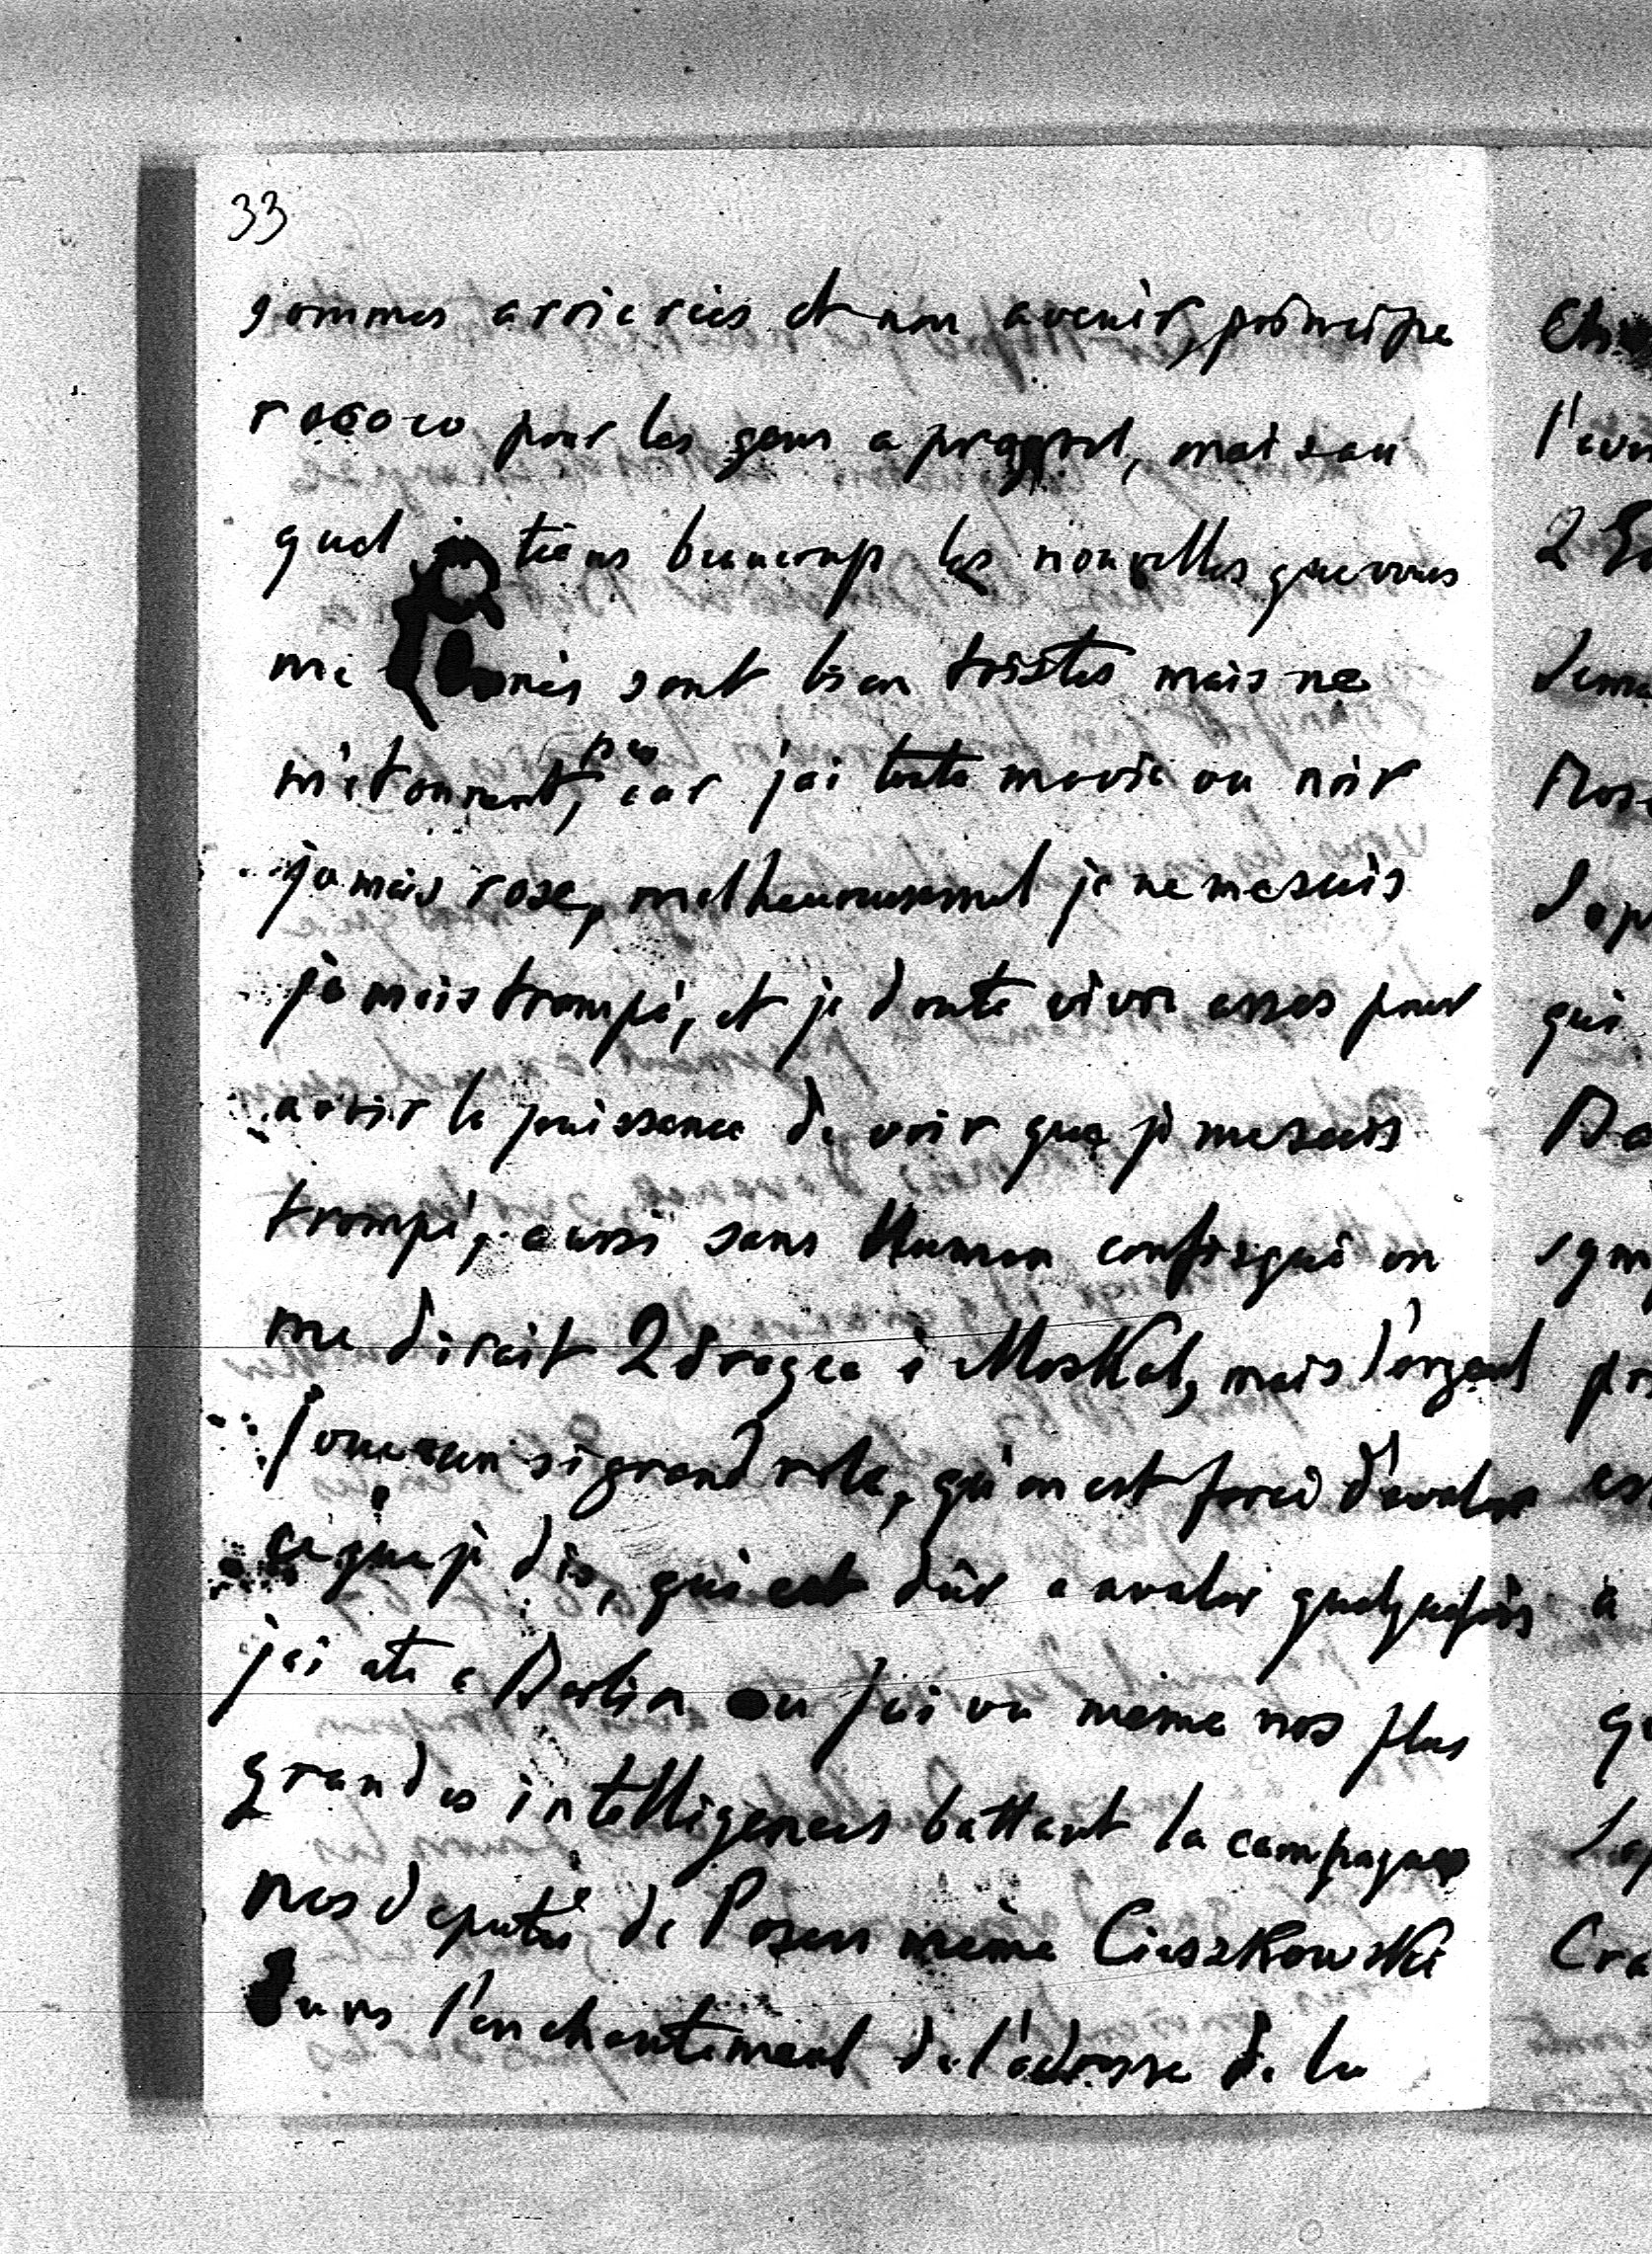 33
sommes arrierées et non avenir, principe
rococo pour les gens a progrect, mais au
quel je tiens beaucoup les nouvelles que vous
me donnés sont bien tristes mais ne
m'etonnent, pas car j'ai toute ma vie vu noir
jamais rose, malheureusement je ne me suis
jamais trompé, et je doute vivre asses pour
avoir la jouissance de voir que je me suis
trompé, aussi sans Human confisqué on
me dirait 2 drogea i Moskal, mais l'argent
joue un si grand role, qu'on est forcé d'avaler
ce que je dis, qui est dur a avaler quelquefois
j'ai ete a Berlin ou j'ai vu meme nos plus
grandes intelligences battant la campagne
nos deputés de Posen même Cieszkowski
dans l'enchantement de l'adresse de la